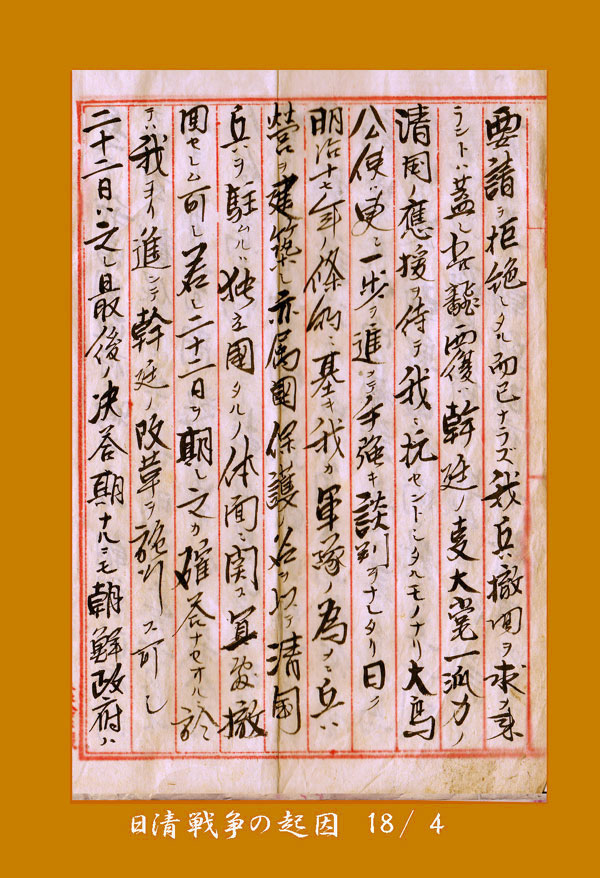 要請ヲ拒絶シタル而已ナラズ我兵ノ撤回ヲ求ノ来
ラントハ蓋シ
清国ノ應援ヲ待テ我ニ抗セントシタルモノナリ大鳥
公使ハ更ニ一歩ヲ進メテ手強キ談判ヲナシタリ曰ク
明治十七年ノ條約ニ基キ我カ軍隊ノ為メニ兵
營ヲ建築シ亦属國保護ノ名ヲ以テ清國
兵ヲ駐ムルハ独立國タルノ体面ニ関ス 撤
回セシム可シ若シ二十二日ヲ期シ之カ確答ナセサルニ於
テハ我ヨリ進ンテ幹廷ノ改革ヲ施行ス可シ
二十二日ハ之レ最後ノ决答期ナルニモ朝鮮政府ハ
日清戦争の起因 18/ 4